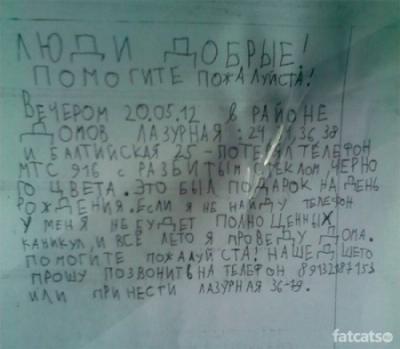 ЛЮДИ ДОБРЫЕ!
ПОМОГИТЕ ПОЖАЛУЙСТА!
ВЕЧЕРОМ 20.05.12 В РАЙОНЕ
ДОМОВ ЛАЗУРНАЯ: 24, 36,38
И БАЛТИЙСКАЯ 25 - ПОТЕРЯЛ ТЕЛЕФОН
МТС 916 С РАЗБИТЫМ СТЕКЛОМ, ЧЕРНО
ГО ЦВЕТА. ЭТО БЫЛ ПОДАРОК НА ДЕНЬ
РОЖДЕНИЯ. ЕСЛИ Я НЕ НАЙДУ ТЕЛЕФОН
У МЕНЯ НЕ БУДЕТ ПОЛНОЦЕННЫХ
КАНИКУЛ, И ВСЁ ЛЕТО Я ПРОВЕДУ ДОМА.
ПОМОГИТЕ ПОЖАЛУЙСТА! НАШЕДШЕГО
ПРОШУ ПОЗВОНИТЬ НА ТЕЛЕФОН
ИЛИ ПРИНЕСТИ ЛАЗУРНАЯ
fatcats